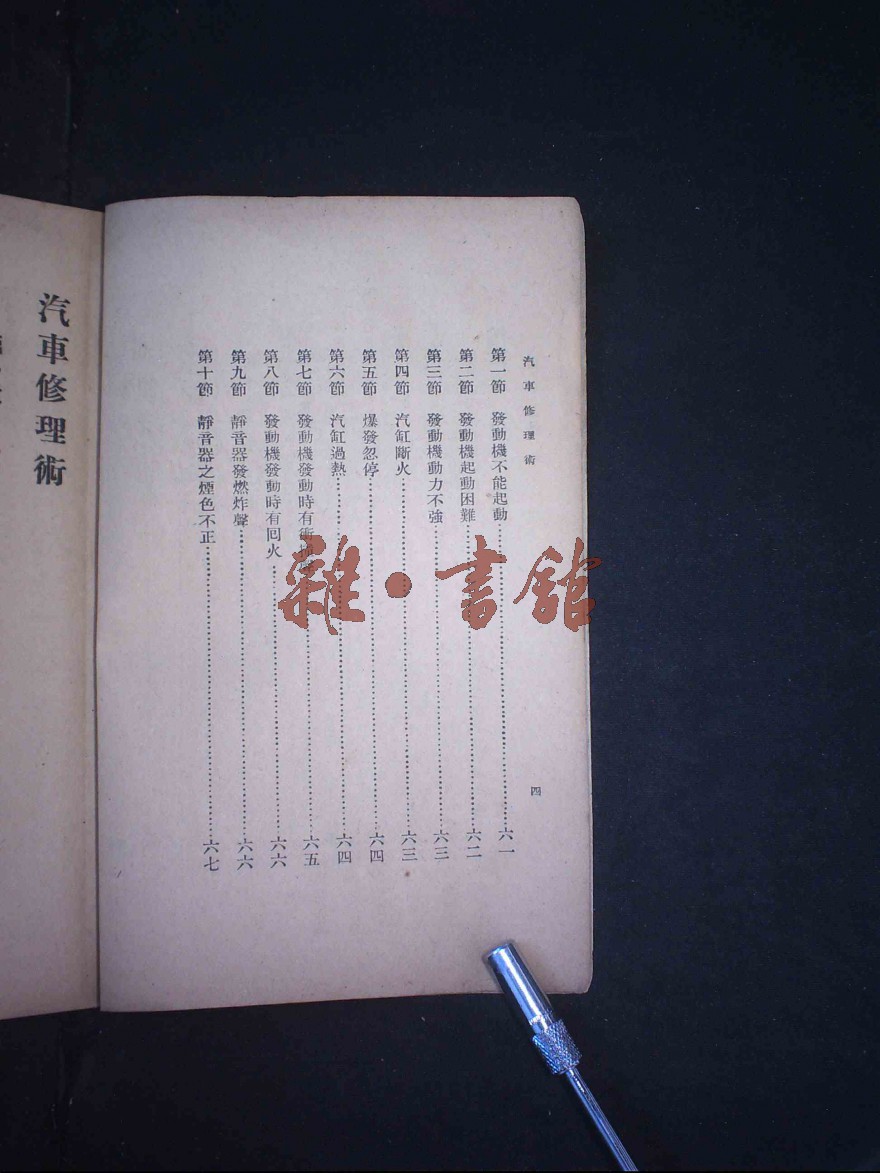 汽車修理術
四
第一節 發動機不能起動……六一
第二節 發動機起動困難……六二
第三節 發動機動力不強……六三
第四節 汽缸斷火……六三
第五節 爆發忽停……六四
第六節 汽缸過熱……六四
第七節 發動機發動時有衝……六五
第八節 發動機發動時有回火……六六
第九節 靜音器發燃炸聲……六六
第十節 靜音器之煙色不正……六七
汽車修理術
雜·書館